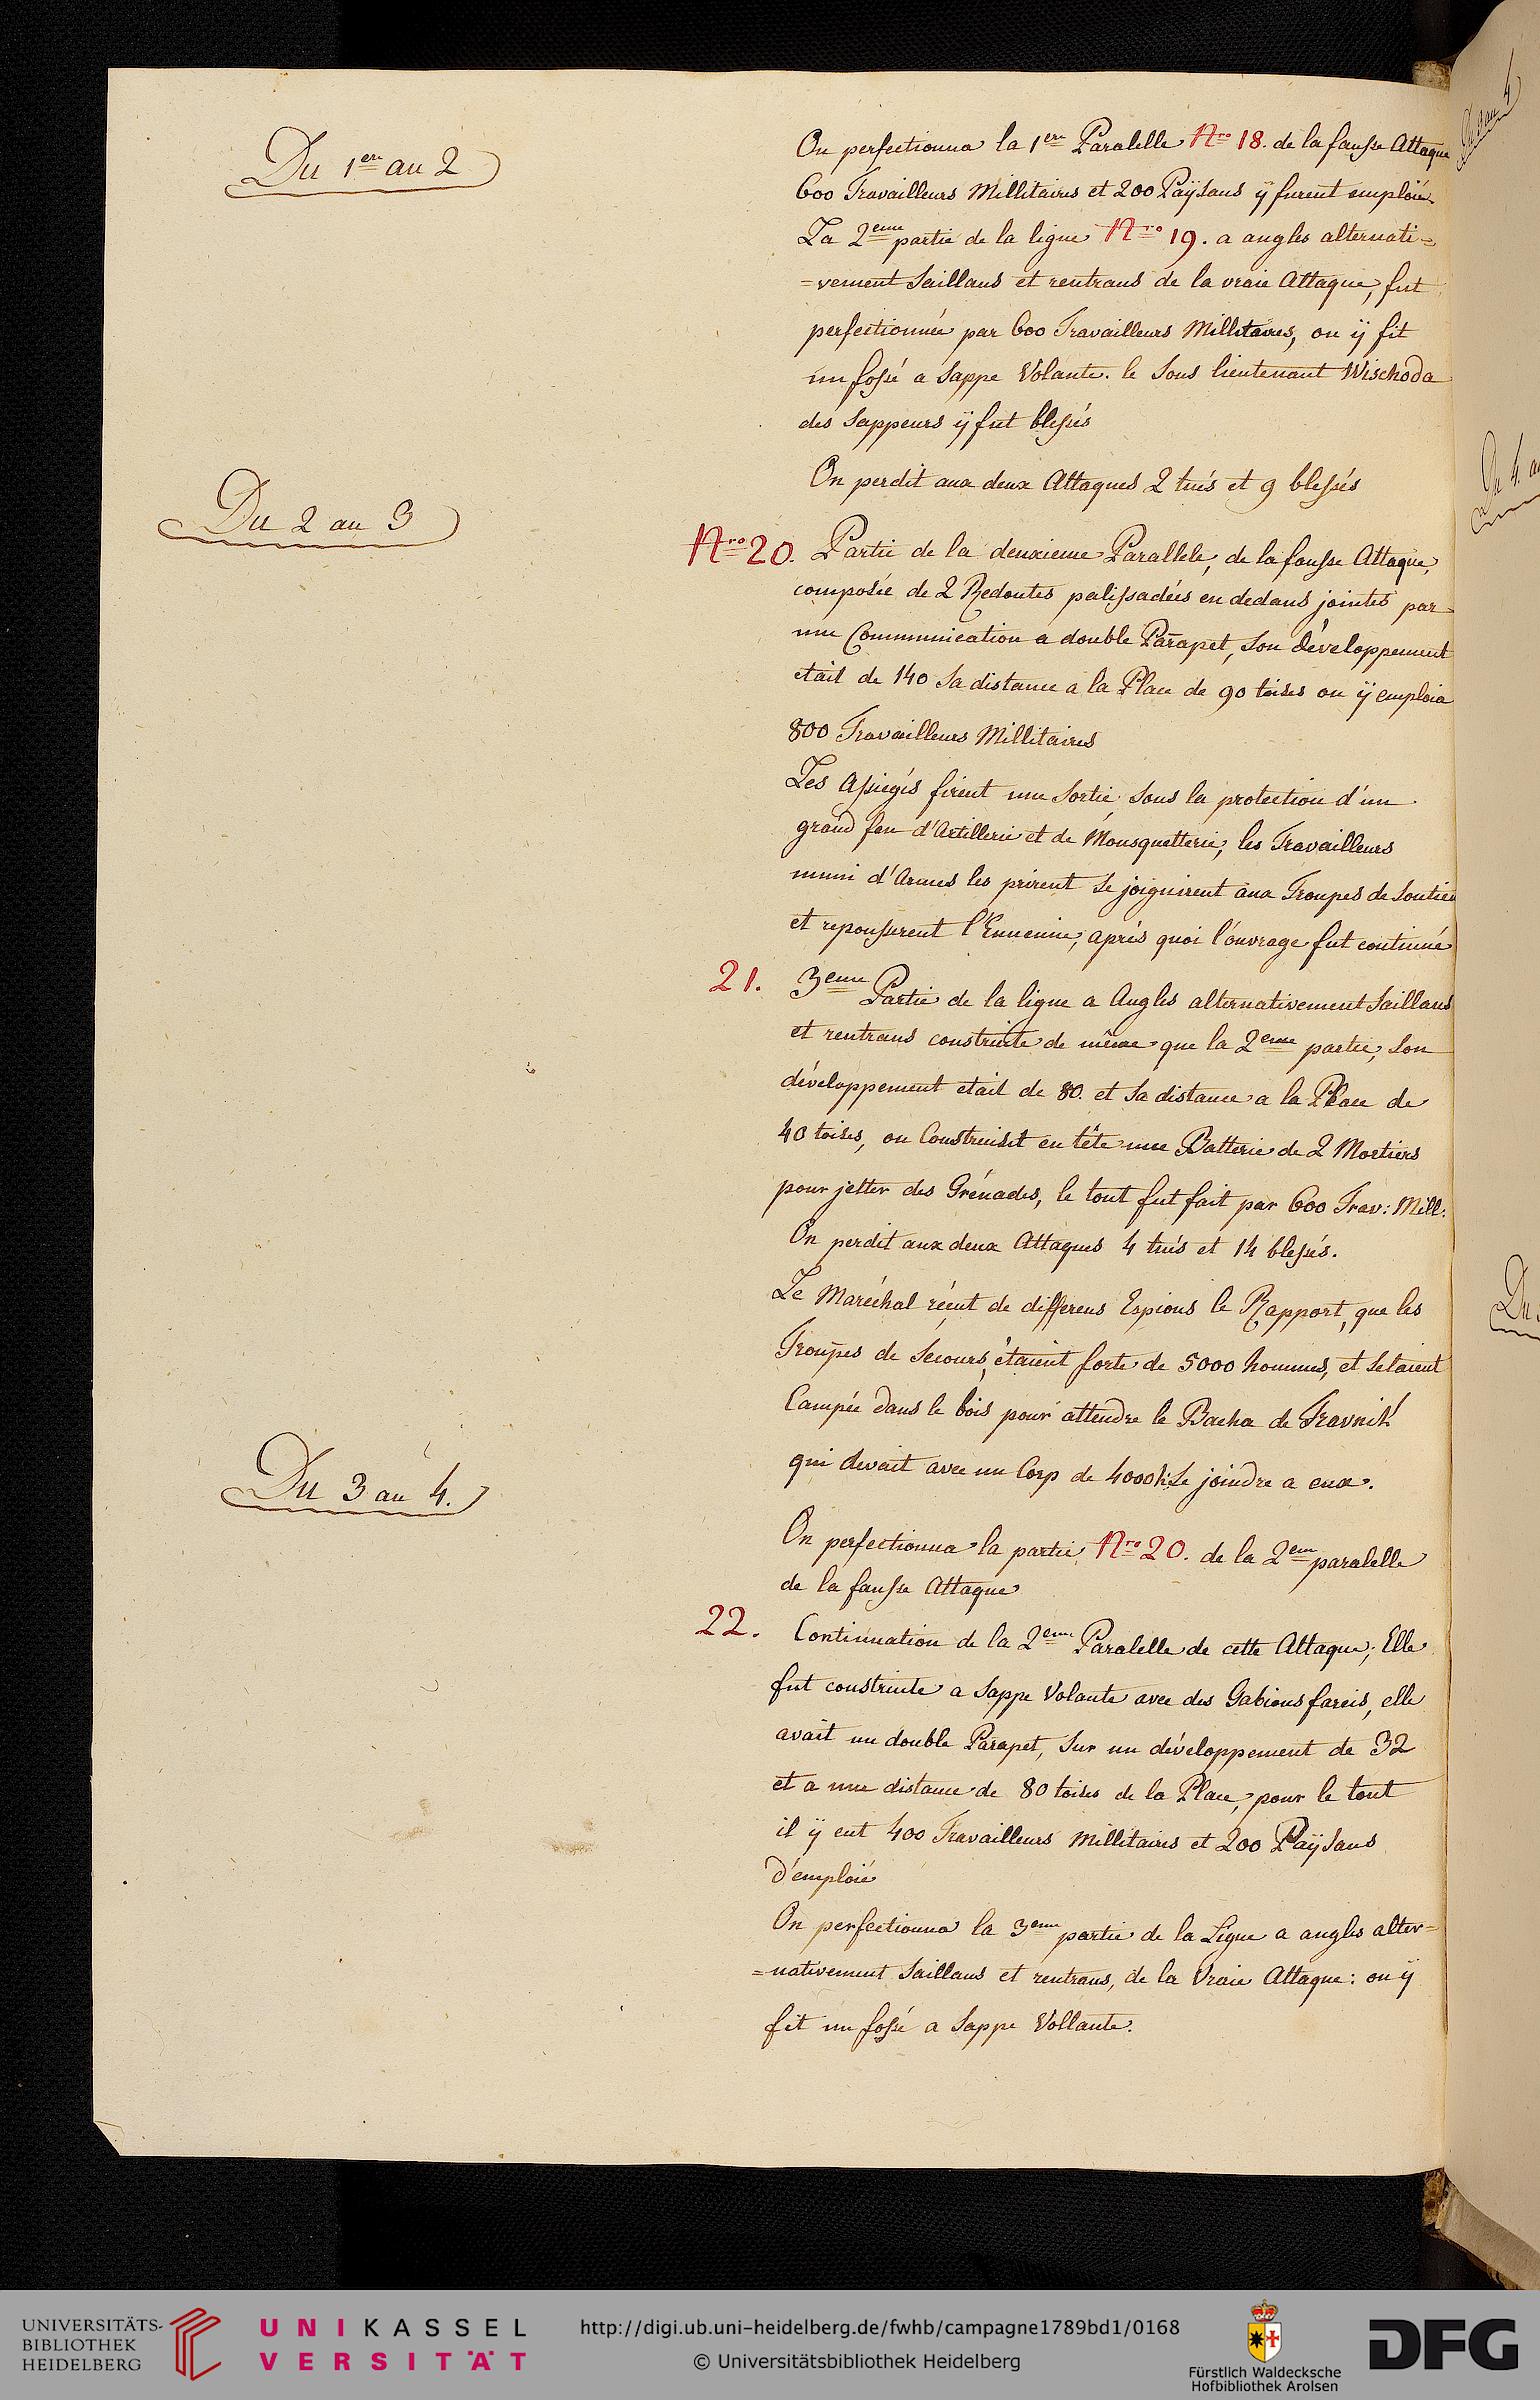 Du 1ere au 2
On perfectionna la 1ere Paralelle Nro 18. de la fausse Attaque
600 Travailleurs Millitaires et 200 Paÿsans ÿ furent emploié.
La 2eme partie de la ligne Nro 19. a angles alternati=
=vement Saillans et rentrans de la vraie Attaque, fut
perfectionnée par 600 Travailleurs Millitaires, on ÿ fit
un fossé a Sappe Volante. le Sous lieutenant Wischoda
des Sappeurs ÿ fut blessés
On perdit aux deux Attaques 2 tués et 9 blessés
Du 2 au 3
Nro 20. Partie de la deuxieme Parallele, de la fausse Attaque,
composée de 2 Redoutes palissadées en dedans jointes par
une Communication a double Parapet, Son développement
etait de 140 Sa distance a la Place de 90 toises on ÿ emploia
800 Travailleurs Millitaires
Les Assiegés firent une Sortie Sous la protection d'un
grand feu d'Artillerie et de Mousquetterie, les Travailleurs
muni d'Armes les prirent Se joignirent aux Troupes de Soutien
et repousserent l'Ennemie, aprés quoi l'ouvrage fut continué
21. 3eme Partie de la ligne a Angles alternativement Saillans
et rentrans construite de même que la 2eme partie, Son
développement etait de 80. et Sa distance a la Place de
40 toises, on Construisit en tête une Batterie de 2 Mortiers
pour jetter des Grénades, le tout fut fait par 600 Trav: Mill:
On perdit aux deux Attaques 4 tués et 14 blessés.
Le Maréchal réçut de differens Espions le Rapport, que les
Troupes de Secours, étaient forte de 5000 hommes, et Setaient
Campée dans le bois pour attendre le Bacha de Travnik
qui devait avec un Corp de 4000 h: Se joindre a eux.
Du 3 au 4.
On perfectionna la partie Nro 20. de la 2eme paralelle
de la fausse Attaque
22. Continuation de la 2eme Paralelle de cette Attaque; Elle
fut construite a Sappe Volante avec des Gabions farcis, elle
avait un double Parapet, Sur un développement de 32
et a une distance de 80 toises de la Place, pour le tout
il ÿ eut 400 Travailleurs Millitaires et 200 Paÿsans
d'emploié
On perfectionna la 3eme partie de la Ligne a angles alter=
=nativement Saillans et rentrans, de la Vraie Attaque: on ÿ
fit un fossé a Sappe Vollante.
UNIVERSITÄTS-
BIBLIOTHEK
HEIDELBERG
UNIKASSEL
VERSITÄT
http://digi.ub.uni-heidelberg.de/fwhb/campagne1789bd1/0168
© Universitätsbibliothek Heidelberg
Fürstlich Waldecksche
Hofbibliothek Arolsen
DFG